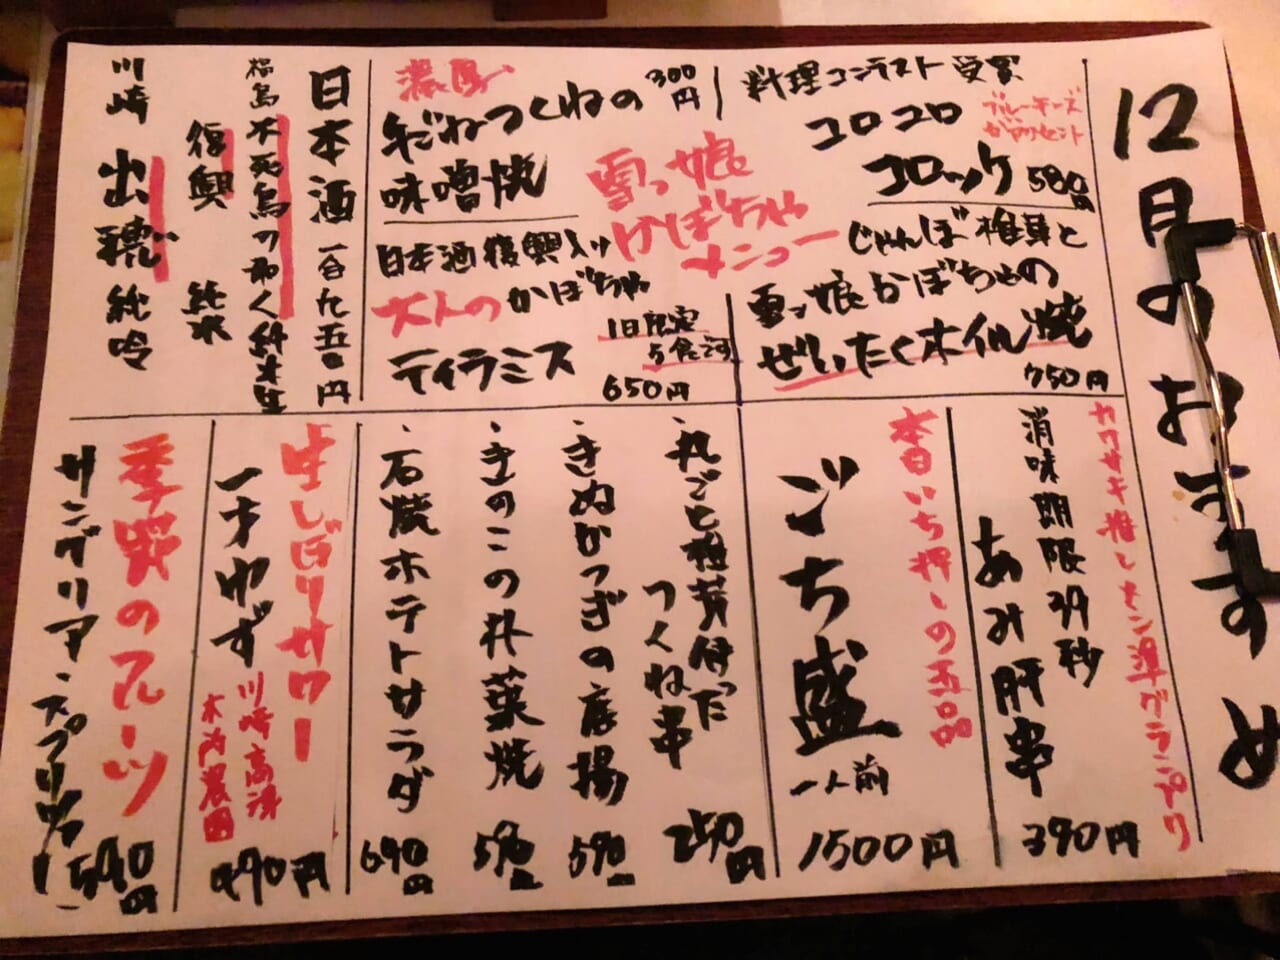 12月のおすすめ
料理コンテスト受賞
コロコロ
コロッケ 580円
ブルーチーズ
がアクセント
雪っ娘
かぼちゃ
メニュー
じゃんぼ椎茸と
雪っ娘かぼちゃの
ぜいたくホイル焼
750円
濃厚
つくねの
味噌焼
300円
日本酒復興入り
大人のかぼちゃ
ティラミス
1日限定
5食です
650円
日本酒 一合九五〇円
福島 不死鳥の如く 純米生
復興 純米
川崎 出穂 純吟
カワサキ推しメン準グランプリ
消味期限39秒
あみ肝串
390円
本日いち押しの五品
ごち盛
一人前
1500円
・丸ごと椎茸付った
つくね串
250円
・きぬかつぎの唐揚
590円
・きのこの朴葉焼
590円
・石焼ポテトサラダ
690円
生しぼりサワー
一才ゆず
川崎高津
木内農園
490円
季節のフルーツ
サングリア・スプリッツァー
590円